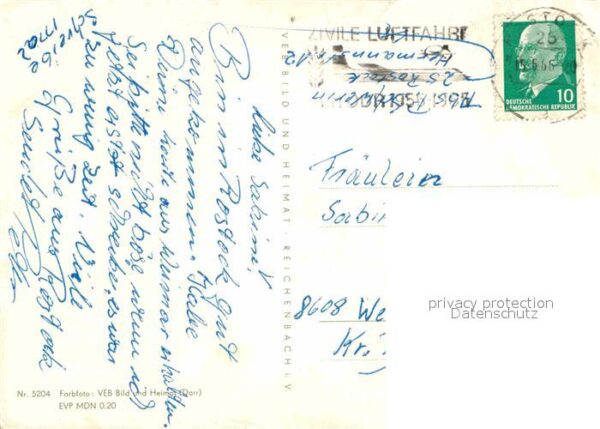 Liebe Sabine!
Bin in Rostock gut
angekommen. Habe
Deine Karte aus Weimar erhalten.
Sei bitte nicht böse wenn ich
jetzt erst schreibe, es war
zu wenig Zeit. Viele
Grüße aus Rostock
sendet
schreibe
mal
VEB BILD UND HEIMAT REICHENBACH I. V.
ZIVILE LUFTFAHRT
Hermannstr. 12
25 Rostock
Abs.
25
DEUTSCHE
DEMOKRATISCHE REPUBLIK
10
Fräulein
Sabin
8608 We
Kr.
privacy protection
Datenschutz
Nr. 5204 Farbfoto: VEB Bild und Heimat (Darr)
EVP MDN 0.20